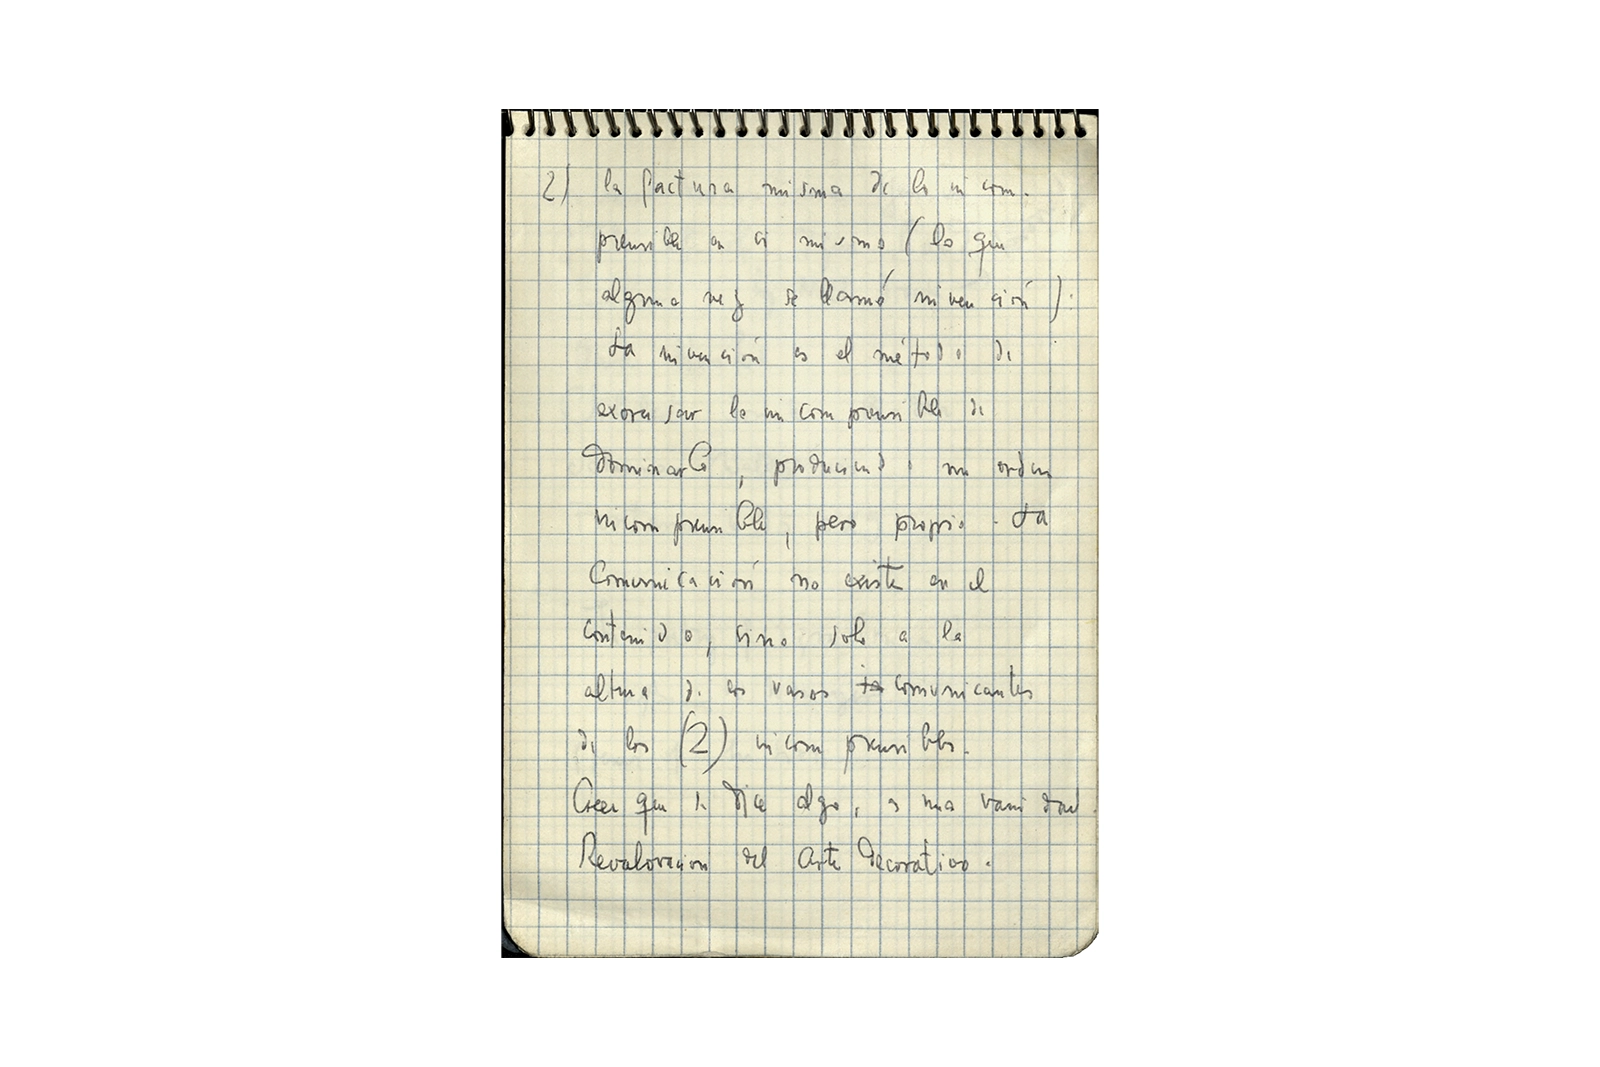 2) la factura misma de lo incom-
prensible en si mismo (lo que
alguna vez se llamó invención).
La invención es el método de
exorcisar lo incomprensible de
dominarlo, produciendo un orden
incomprensible, pero propio. La
Comunicación no existe en el
contenido, sino solo a la
altura de los vasos comunicantes
de los (2) incomprensibles.
Creer que se dice algo, es una vanidad.
Revaloración del Arte Decorativo.